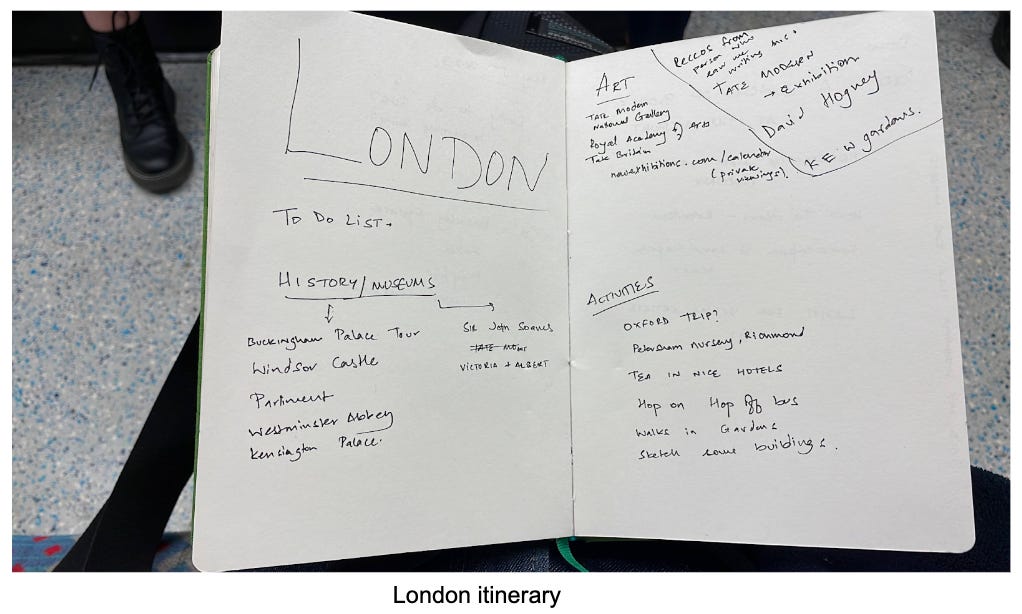 LONDON
TO DO LIST.
HISTORY/MUSEUMS
Buckingham Palace Tour
Windsor Castle
Parliment
Westminster Abbey
Kensington Palace.
Sir John Soanes
VICTORIA + ALBERT
ART
TATE Modern
National Gallery
Royal Academy of Arts
Tate Britain
newexhibitions.com/calendar
(private
viewings).
Reccos from
person who
saw me
writing this!
TATE MODERN
→ exhibition
David Hogney
KEW gardens.
ACTIVITIES
OXFORD TRIP?
Petersham nursery, Richmond
TEA IN NICE HOTELS
Hop on Hop Off bus
Walks in Gardens
Sketch some buildings.
London itinerary